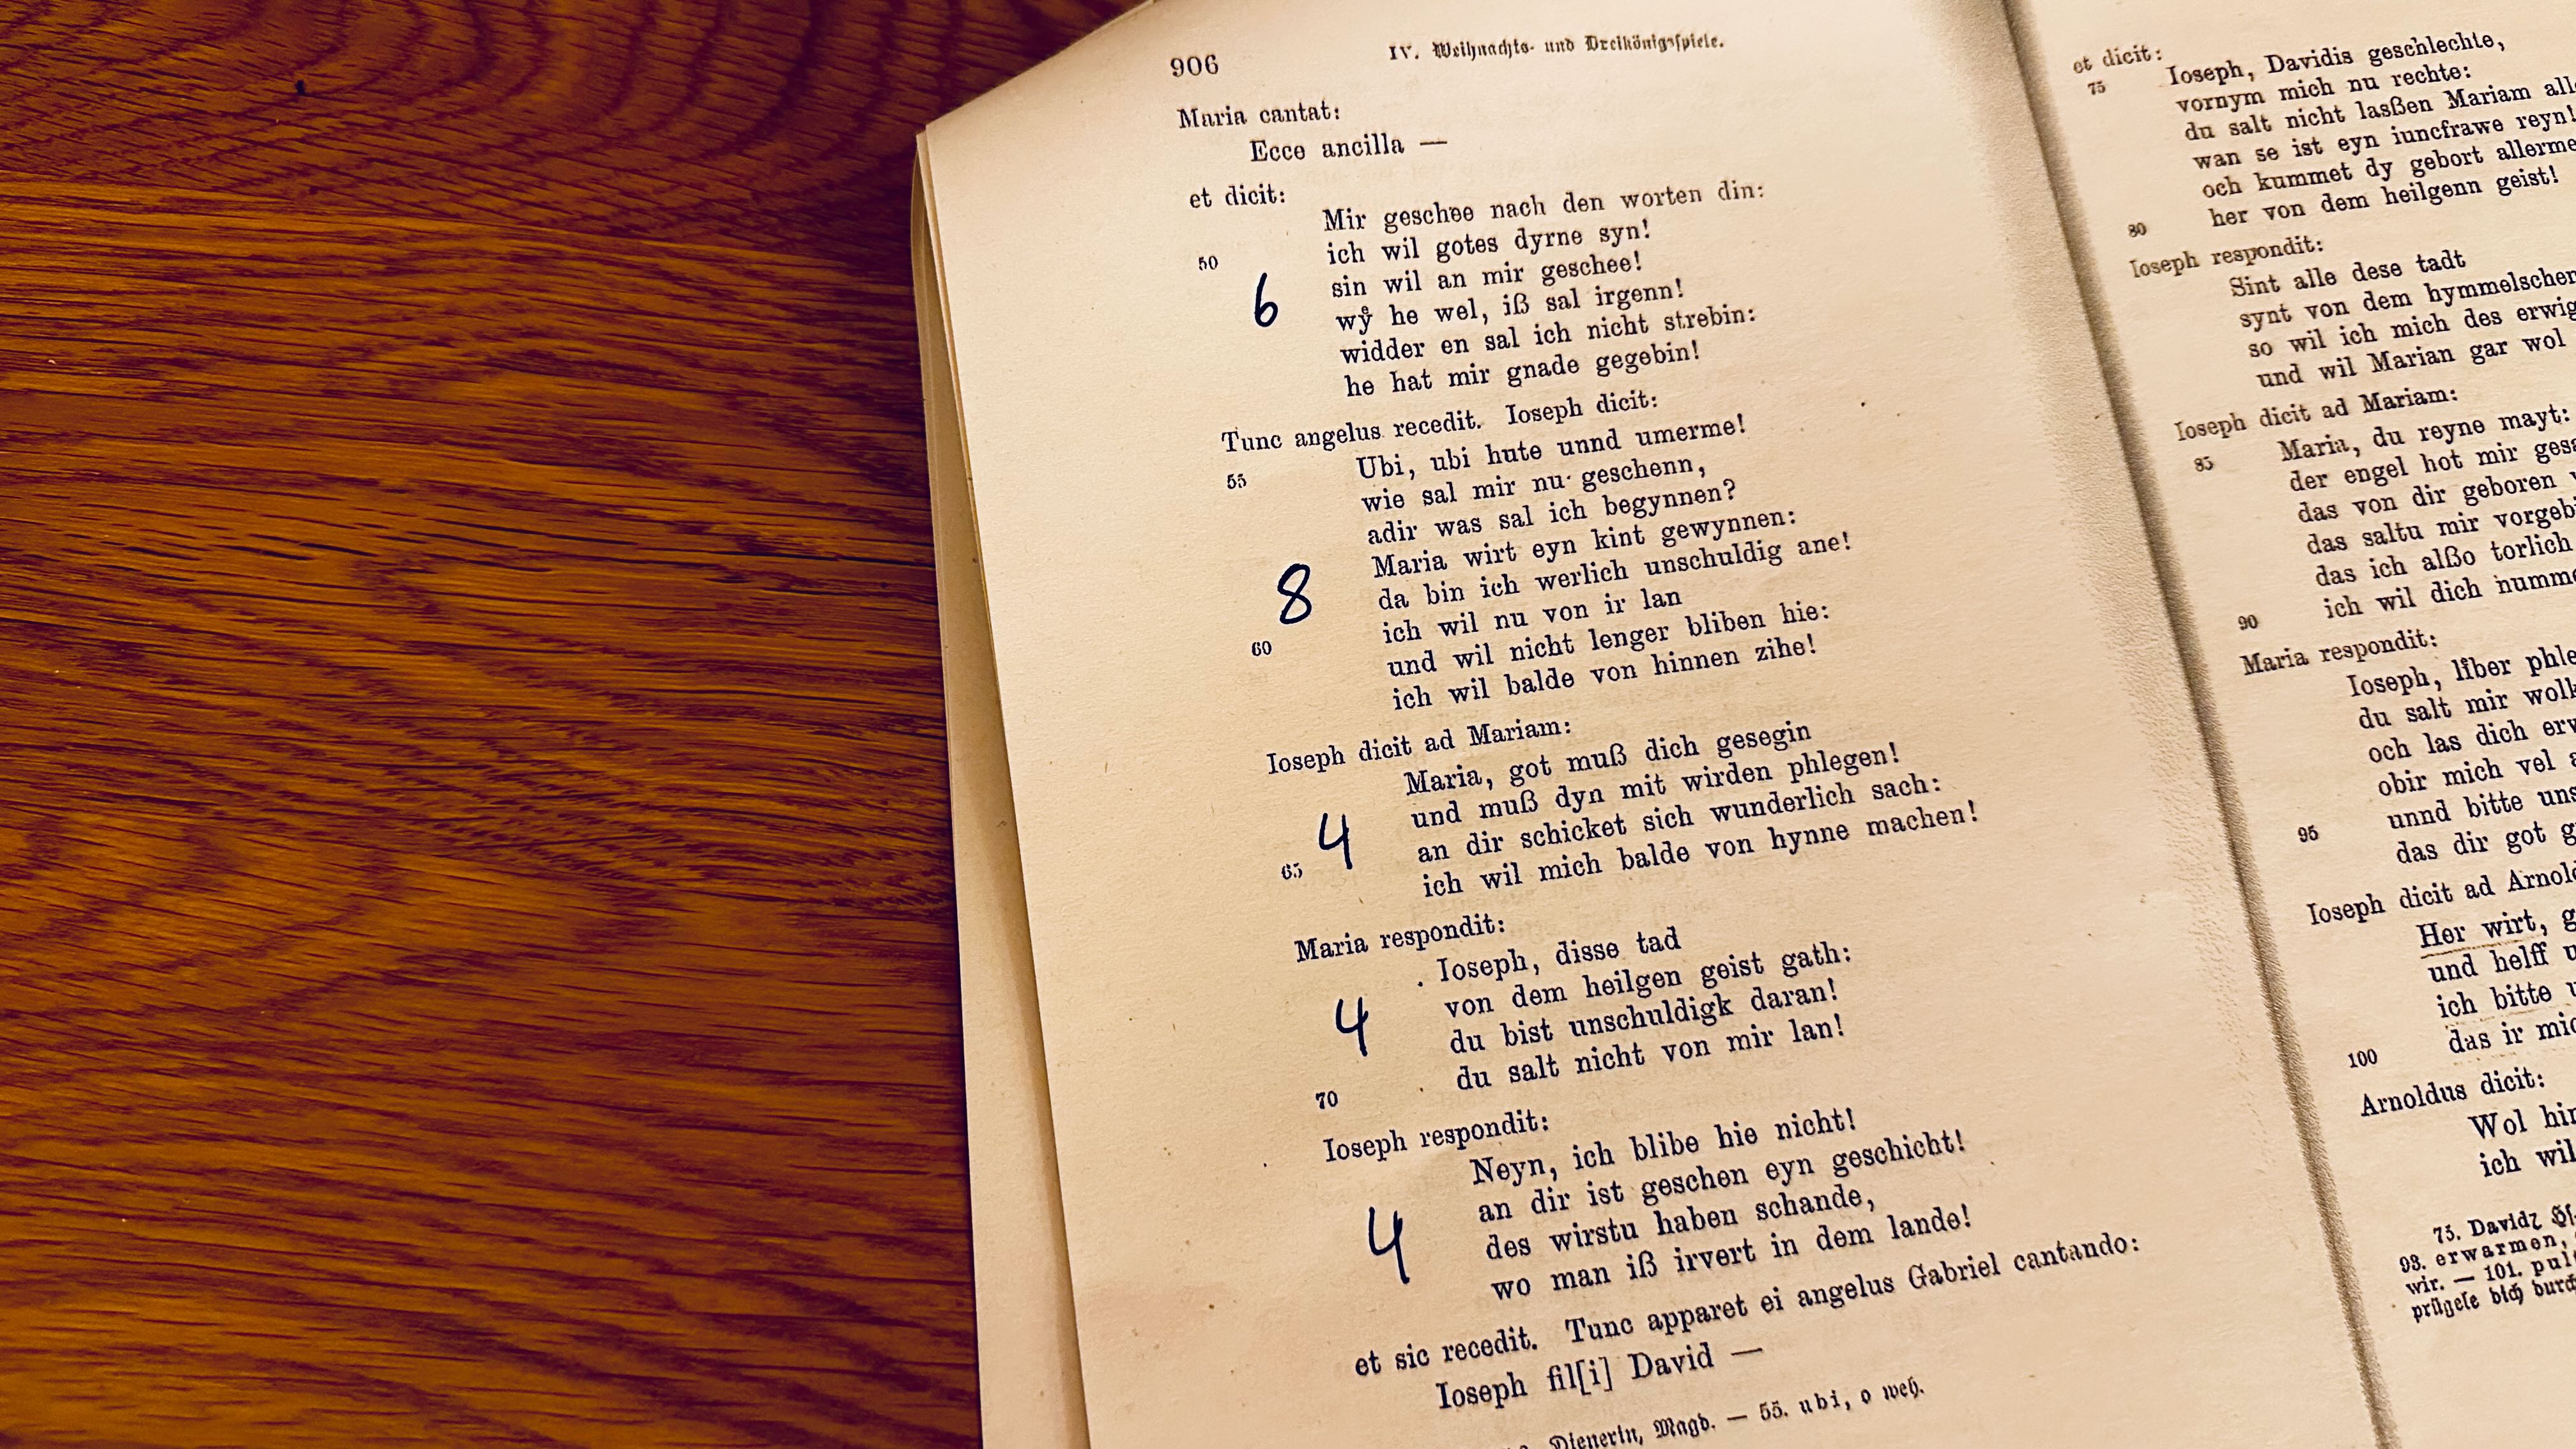 906 IV. Weihnachts- und Dreikönigsspiele.
Maria cantat:
Ecce ancilla —
et dicit:
Mir geschee nach den worten din:
50 ich wil gotes dyrne syn!
sin wil an mir geschee!
6
wẙ he wel, iß sal irgenn!
widder en sal ich nicht strebin:
he hat mir gnade gegebin!
Tunc angelus recedit. Ioseph dicit:
55 Ubi, ubi hute unnd umerme!
wie sal mir nu geschenn,
adir was sal ich begynnen?
Maria wirt eyn kint gewynnen:
8
da bin ich werlich unschuldig ane!
60 ich wil nu von ir lan
und wil nicht lenger bliben hie:
ich wil balde von hinnen zihe!
Ioseph dicit ad Mariam:
Maria, got muß dich gesegin
und muß dyn mit wirden phlegen!
4
65 an dir schicket sich wunderlich sach:
ich wil mich balde von hynne machen!
Maria respondit:
Ioseph, disse tad
von dem heilgen geist gath:
4
du bist unschuldigk daran!
70 du salt nicht von mir lan!
Ioseph respondit:
Neyn, ich blibe hie nicht!
an dir ist geschen eyn geschicht!
4
des wirstu haben schande,
wo man iß irvert in dem lande!
et sic recedit. Tunc apparet ei angelus Gabriel cantando:
Ioseph fil[i] David —
Dienerin, Magd. — 55. ubi, o weh.
et dicit:
75 Ioseph, Davidis geschlechte,
vornym mich nu rechte:
du salt nicht laßen Mariam
wan se ist eyn iuncfrawe reyn!
och kummet dy gebort
80 her von dem heilgenn geist!
Ioseph respondit:
Sint alle dese tadt
synt von dem
so wil ich mich des
und wil Marian gar wol
Ioseph dicit ad Mariam:
85 Maria, du reyne mayt:
der engel hot mir
das von dir geboren
das saltu mir
das ich alßo torlich
90 ich wil dich
Maria respondit:
Ioseph, liber
du salt mir
och las dich
obir mich vel
95 unnd bitte
das dir got
Ioseph dicit ad
Her wirt,
und helff
ich bitte
100 das ir
Arnoldus dicit:
Wol
ich
75. Davidz
93. erwarmen,
wir. — 101.
prügele dich